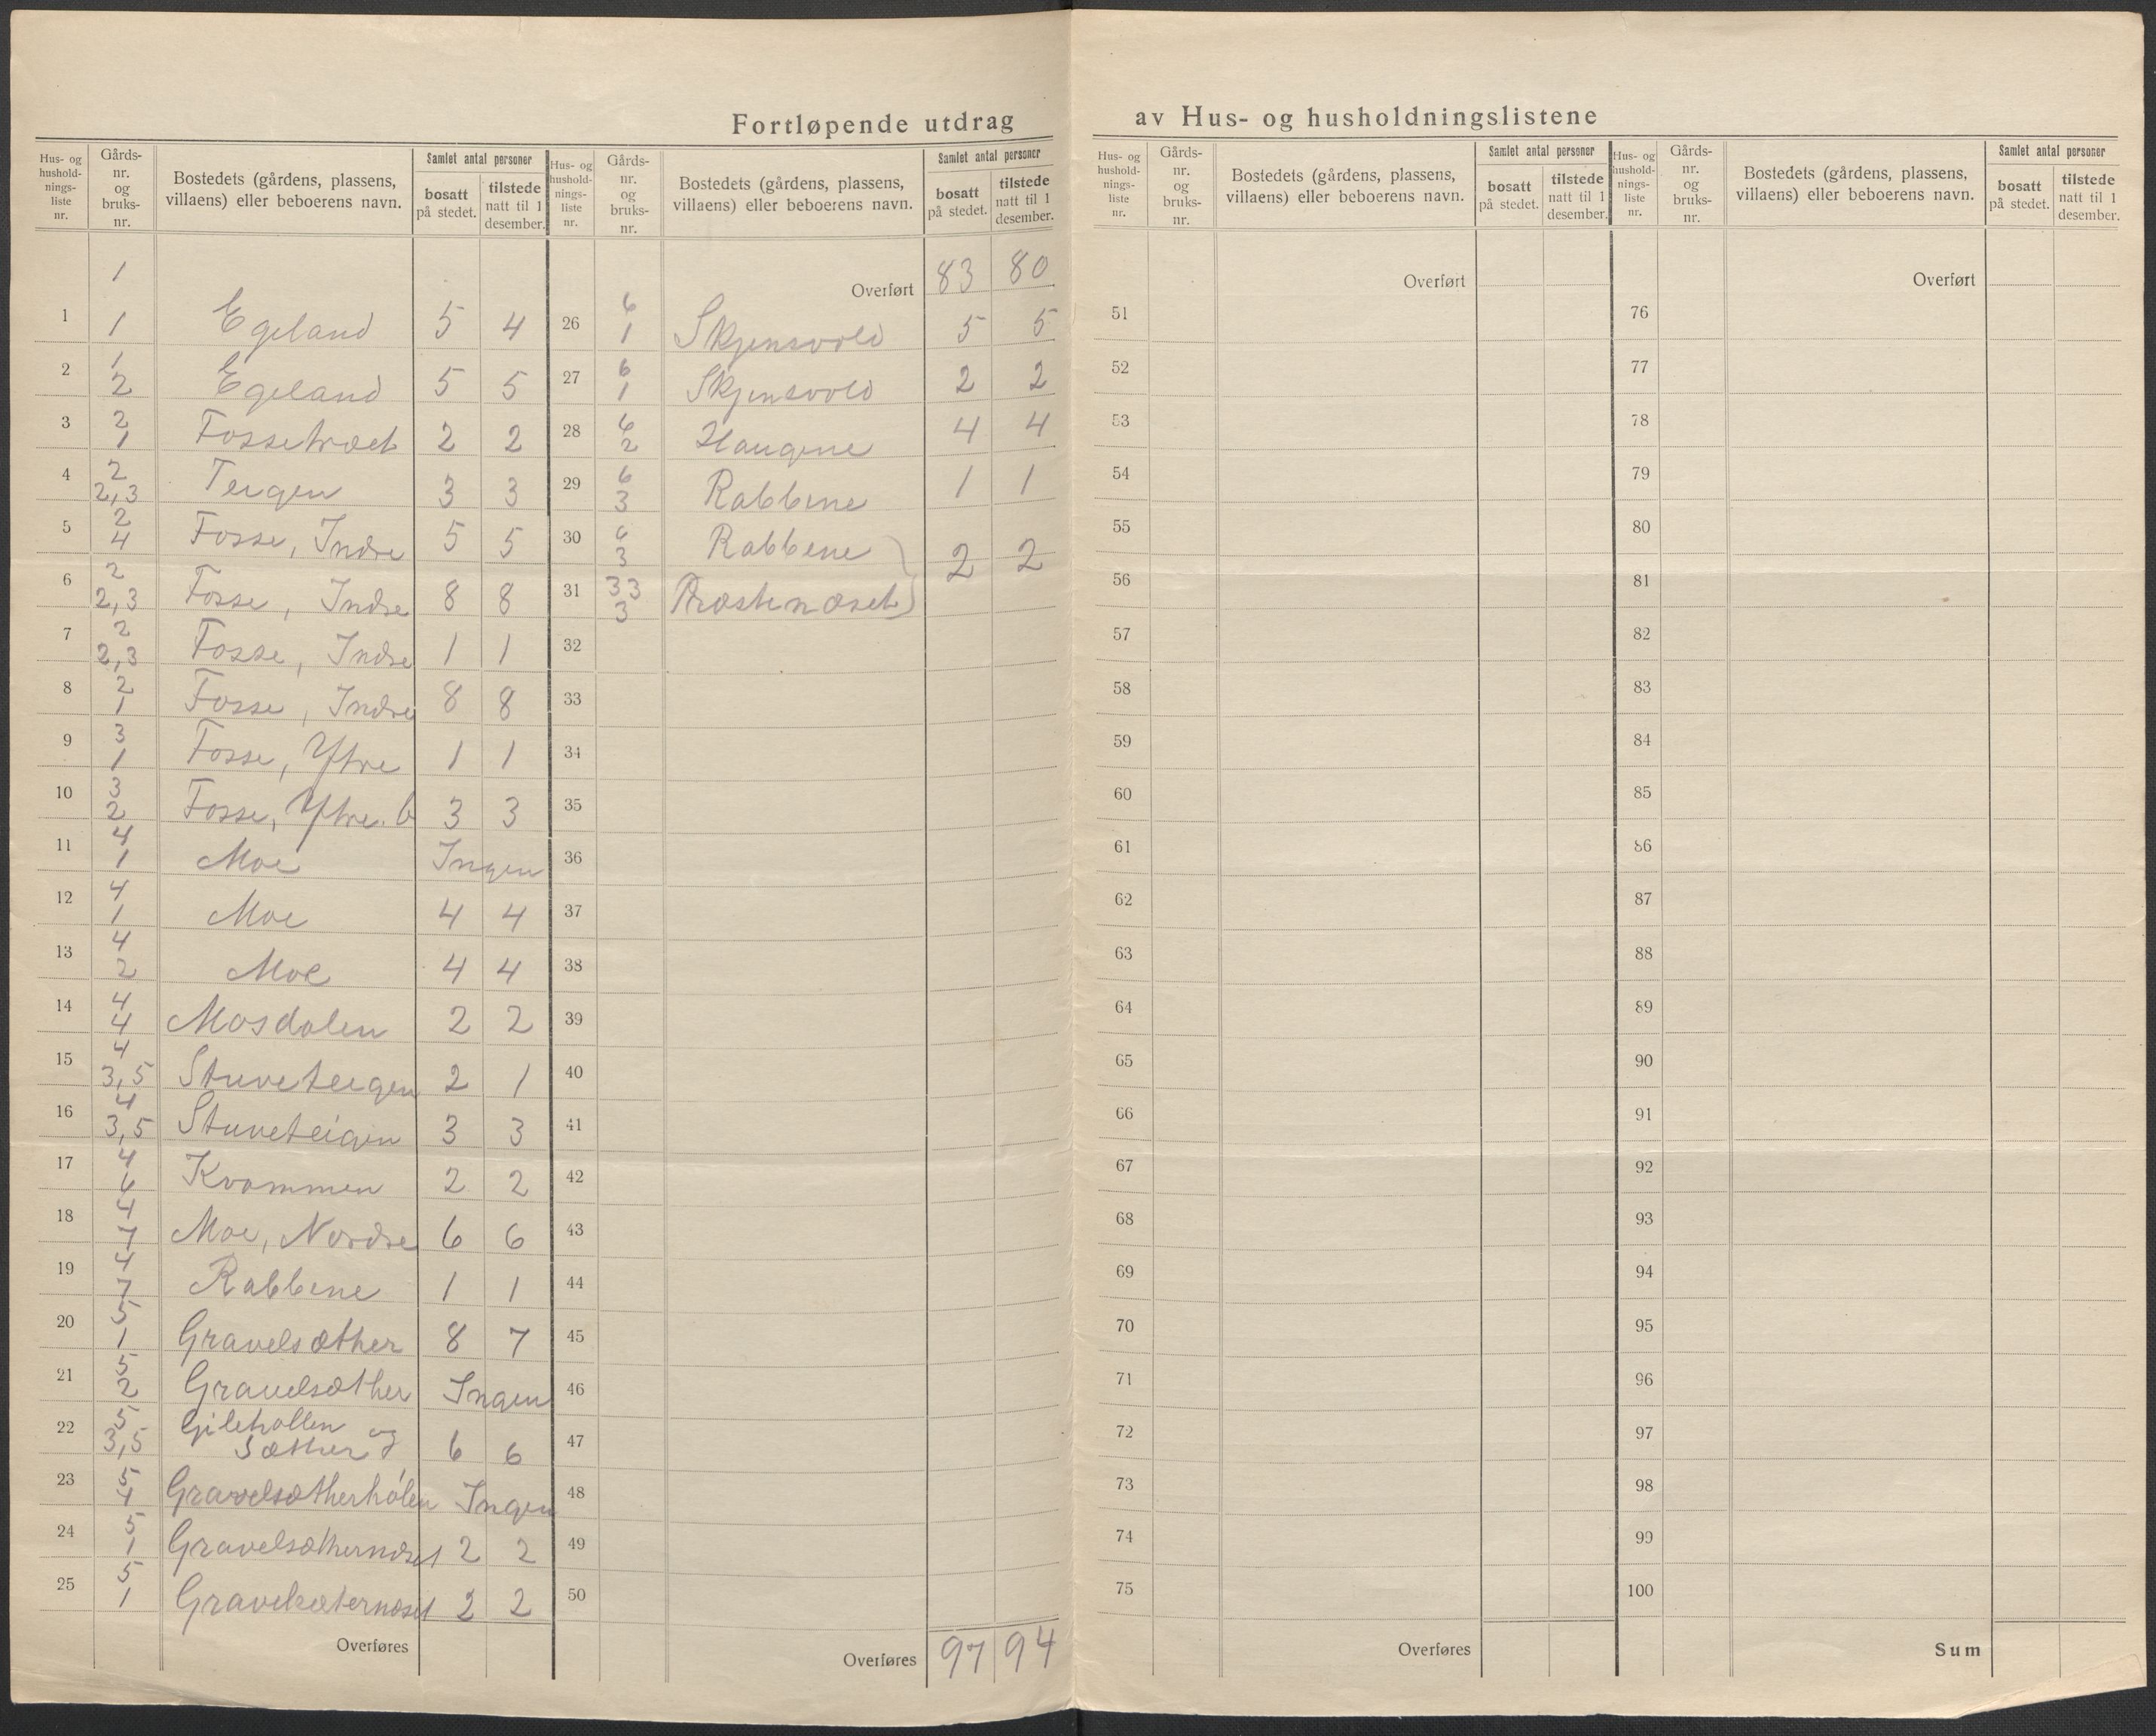 Fortløpende utdrag av Hus- og husholdningslistene
Hus- og husholdningsliste nr. | Gårds-nr. og bruks-nr. | Bostedets (gårdens, plassens, villaens) eller beboerens navn. | Samlet antal personer: bosatt på stedet. | tilstede natt til 1 desember.
1 | 1 1 | Egeland | 5 | 4
2 | 1 2 | Egeland | 5 | 5
3 | 2 1 | Fossetræet | 2 | 2
4 | 2 2,3 | Teigen | 3 | 3
5 | 2 4 | Fosse, Indre | 5 | 5
6 | 2 2,3 | Fosse, Indre | 8 | 8
7 | 2 2,3 | Fosse, Indre | 1 | 1
8 | 2 1 | Fosse, Indre | 8 | 8
9 | 3 1 | Fosse, Ytre | 1 | 1
10 | 3 2 | Fosse, Ytre b | 3 | 3
11 | 4 1 | Moe | Ingen
12 | 4 1 | Moe | 4 | 4
13 | 4 2 | Moe | 4 | 4
14 | 4 4 | Mosdalen | 2 | 2
15 | 4 3,5 | Stuveteigen | 2 | 1
16 | 4 3,5 | Stuveteigen | 3 | 3
17 | 4 6 | Kvammen | 2 | 2
18 | 4 7 | Moe, Nordre | 6 | 6
19 | 4 7 | Rabbene | 1 | 1
20 | 5 1 | Gravelsæther | 8 | 7
21 | 5 2 | Gravelsæther | Ingen
22 | 5 3,5 | Gilehallen og Sæther | 6 | 6
23 | 5 4 | Gravelsætherhølen | Ingen
24 | 5 1 | Gravelsæthernæset | 2 | 2
25 | 5 1 | Gravelsæternæset | 2 | 2
Overføres
Hus- og husholdningsliste nr. | Gårds-nr. og bruks-nr. | Bostedets (gårdens, plassens, villaens) eller beboerens navn. | Samlet antal personer: bosatt på stedet. | tilstede natt til 1 desember.
Overført | 83 | 80
26 | 6 1 | Skjensvold | 5 | 5
27 | 6 1 | Skjensvold | 2 | 2
28 | 6 2 | Haugene | 4 | 4
29 | 6 3 | Rabbene | 1 | 1
30 | 6 3 | Rabbene | 2 | 2
31 | 33 3 | Præstenæset
32
33
34
35
36
37
38
39
40
41
42
43
44
45
46
47
48
49
50
Overføres | 97 | 94
Hus- og husholdningsliste nr. | Gårds-nr. og bruks-nr. | Bostedets (gårdens, plassens, villaens) eller beboerens navn. | Samlet antal personer: bosatt på stedet. | tilstede natt til 1 desember.
Overført
51
52
53
54
55
56
57
58
59
60
61
62
63
64
65
66
67
68
69
70
71
72
73
74
75
Overføres
Hus- og husholdningsliste nr. | Gårds-nr. og bruks-nr. | Bostedets (gårdens, plassens, villaens) eller beboerens navn. | Samlet antal personer: bosatt på stedet. | tilstede natt til 1 desember.
Overført
76
77
78
79
80
81
82
83
84
85
86
87
88
89
90
91
92
93
94
95
96
97
98
99
100
Sum